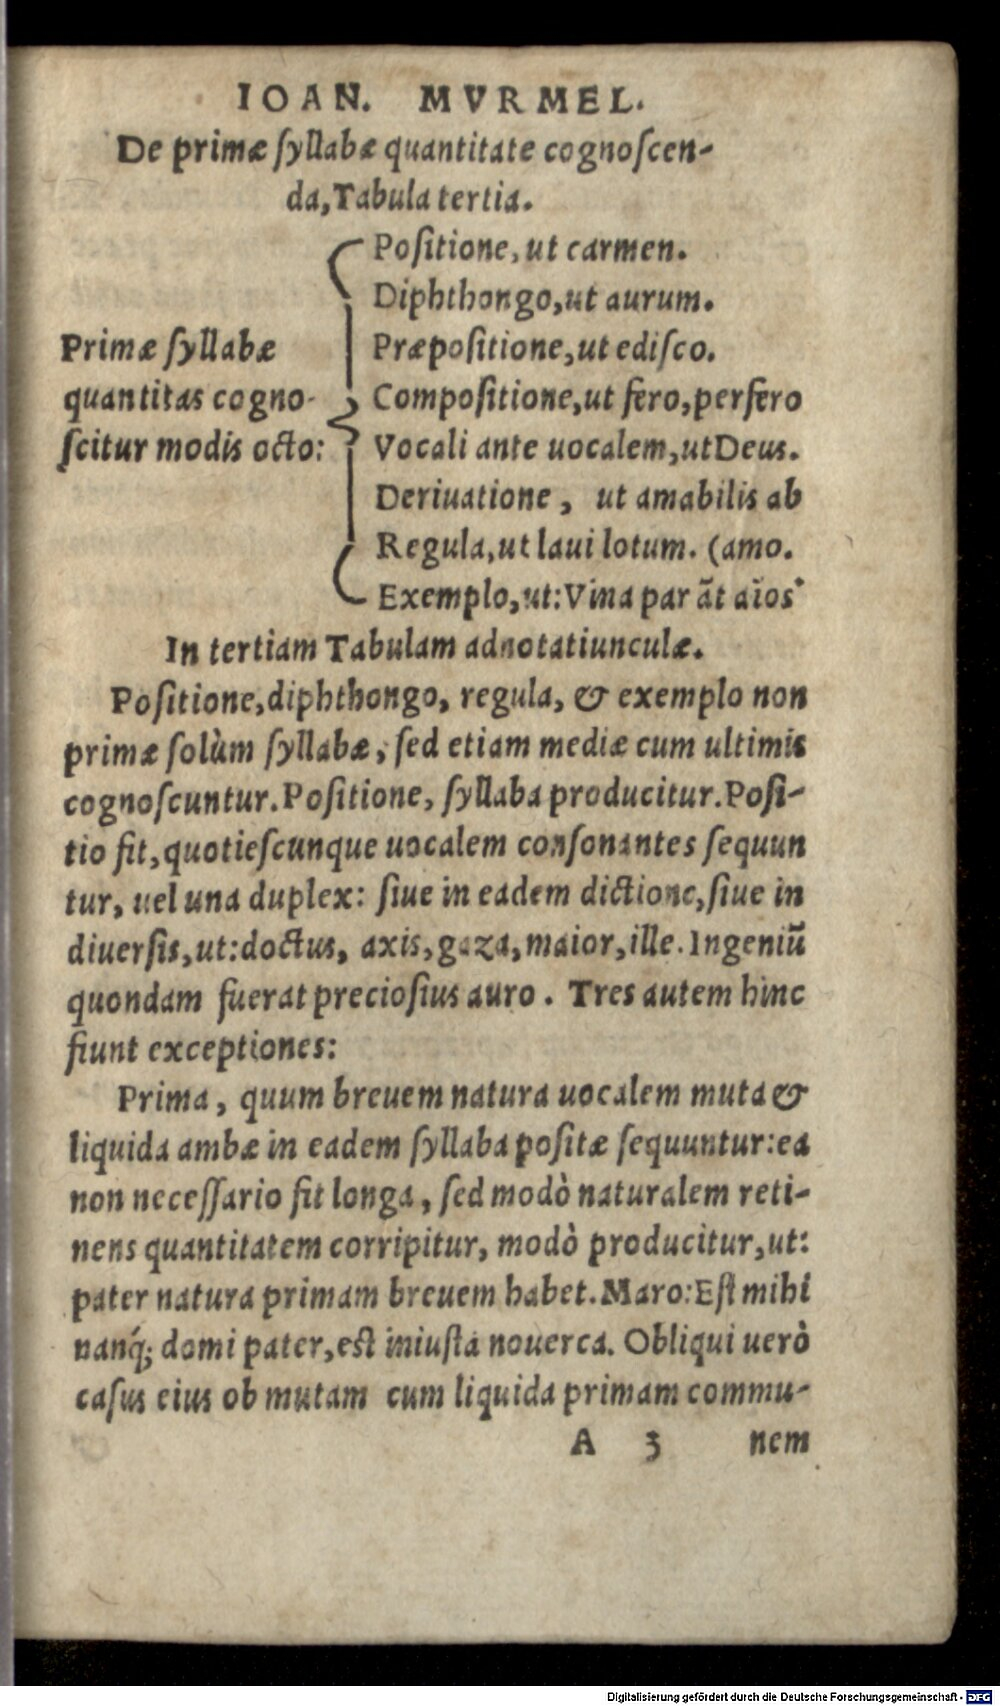 IOAN. MVRMEL.
De primæ ſyllabæ quantitate cognoſcen-
da, Tabula tertia.
Poſitione, ut carmen.
Diphthongo, ut aurum.
Primæ ſyllabæ
quantitas cogno-
ſcitur modis octo:
Præpoſitione, ut ediſco.
Compoſitione, ut fero, perfero
Vocali ante uocalem, ut Deus.
Deriuatione, ut amabilis ab
Regula, ut laui lotum. (amo.
Exemplo, ut: Vina parāt aīos
In tertiam Tabulam adnotatiunculæ.
Poſitione, diphthongo, regula, & exemplo non
primæ ſolùm ſyllabæ, ſed etiam mediæ cum ultimis
cognoſcuntur. Poſitione, ſyllaba producitur. Poſi-
tio fit, quotieſcunque uocalem conſonantes ſequun
tur, uel una duplex: ſiue in eadem dictione, ſiue in
diuerſis, ut: doctus, axis, gaza, maior, ille. Ingeniū
quondam fuerat precioſius auro. Tres autem hinc
fiunt exceptiones:
Prima, quum breuem natura uocalem muta &
liquida ambæ in eadem ſyllaba poſitæ ſequuntur: ea
non neceſſario fit longa, ſed modò naturalem reti-
nens quantitatem corripitur, modò producitur, ut:
pater natura primam breuem habet. Maro: Eſt mihi
nanq́; domi pater, eſt iniuſta nouerca. Obliqui uerò
caſus eius ob mutam cum liquida primam commu-
A 3 nem
Digitalisierung gefördert durch die Deutsche Forschungsgemeinschaft - DFG